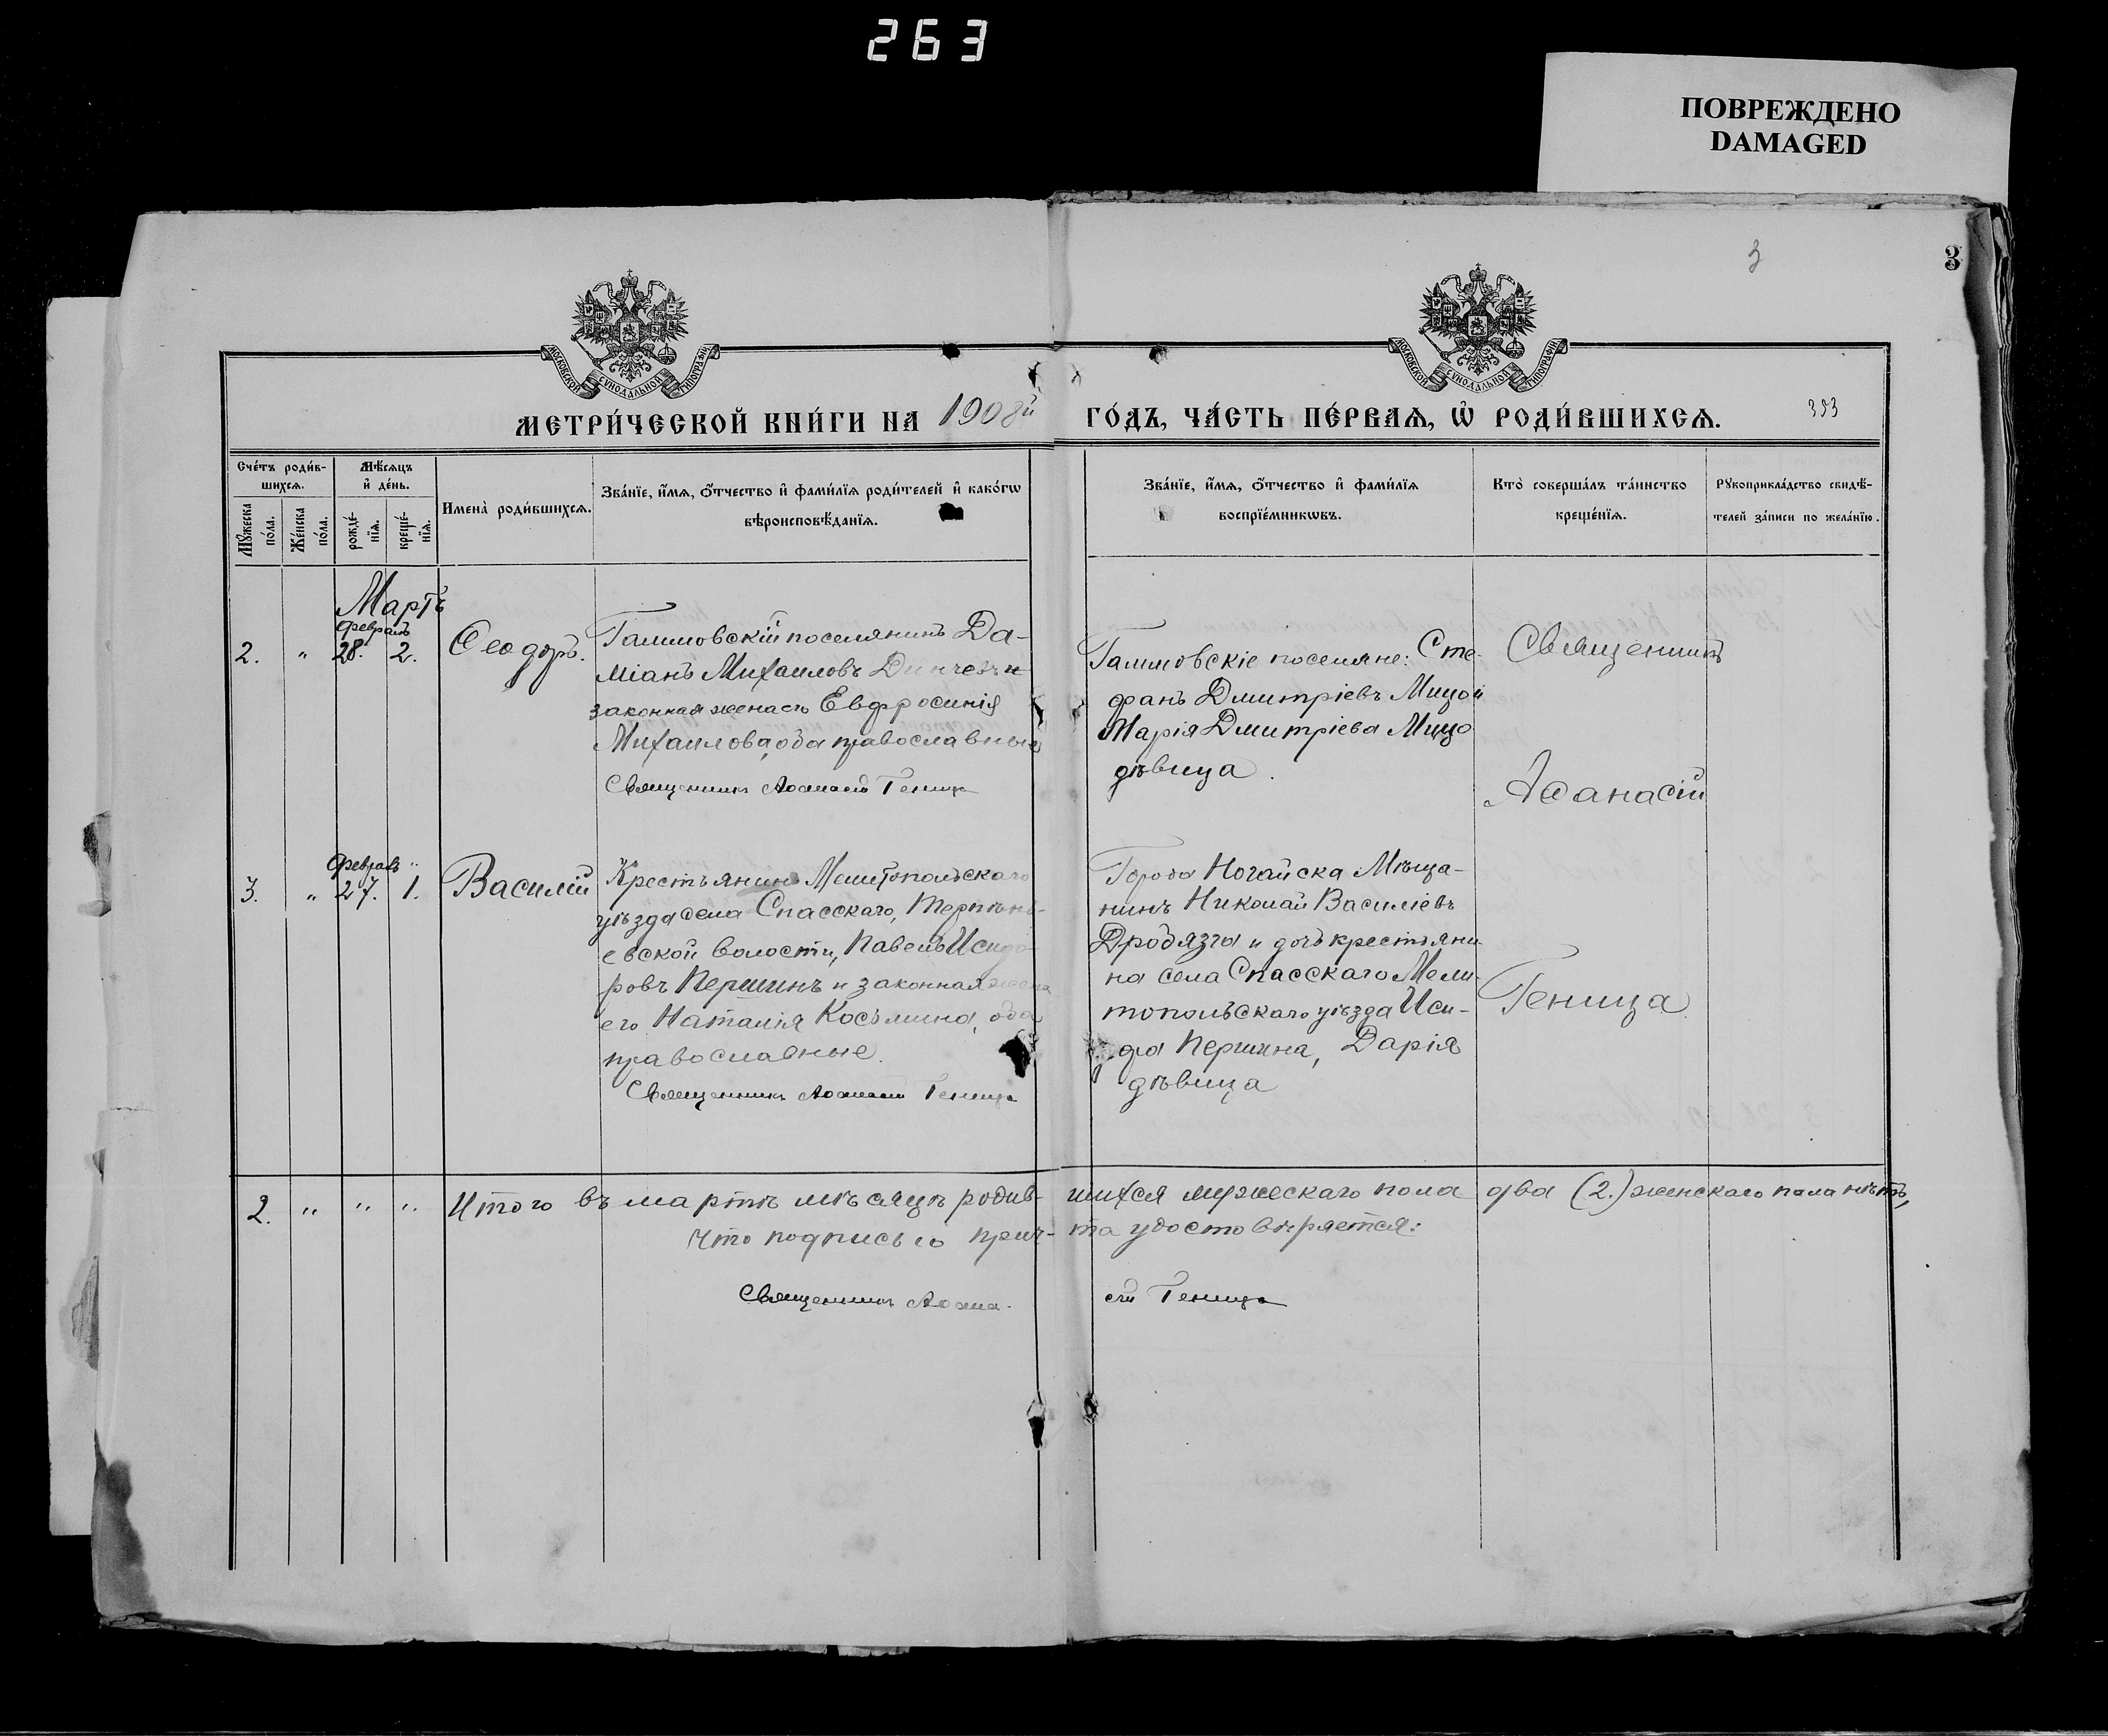 263
ПОВРЕЖДЕНО
DAMAGED
3
3
МОСКОВСКОЙ СѴНОДАЛЬНОЙ ТИПОГРАФІИ
МОСКОВСКОЙ СѴНОДАЛЬНОЙ ТИПОГРАФІИ
МЕТРИ́ЧЕСКОЙ КНИ́ГИ НА 1908й ГО́ДЪ, ЧА́СТЬ ПЕ́РВАѦ, Ѡ҆ РОДИ́ВШИХСѦ.
Сче́тъ роди́в-
шихсѧ.
Мꙋ́жеска
по́ла.
Же́нска
по́ла.
Мѣ́сѧцъ
и҆ де́нь.
рожде́-
нїѧ.
креще́-
нїѧ.
Имена̀ роди́вшихсѧ.
Зва́нїе, и҆́мѧ, ѻ҆́тчество и҆ фами́лїѧ роди́телей и҆ како́гѡ
вѣроисповѣ́данїѧ.
Зва́нїе, и҆́мѧ, ѻ҆́тчество и҆ фами́лїѧ
воспрїе́мникѡвъ.
Кто̀ соверша́лъ та́инство
креще́нїѧ.
Рꙋкоприкла́дство свидѣ́-
телей за́писи по жела́нїю.
Мартъ
Февраль
2. " 28. 2. Ѳеодоръ.
Гаммовскій поселянинъ Да-
міанъ Михаиловъ Динчевъ и
законная жена его Евфросинія
Михаилова, оба православные
Священникъ Аѳанасій Геница
Гаммовскіе поселяне: Сте-
фанъ Дмитріевъ Мицой
Марія Дмитріева Мицо
дѣвица.
Священникъ
Аѳанасій
Геница
Февраль "
3. " 27. 1. Василій
Крестьянинъ Мелитопольскаго
уѣзда села Спасскаго, Терпѣнь-
евской волости, Павелъ Исидо-
ровъ Першинъ и законная жена
его Наталія Косьмина, оба
православные.
Священникъ Аѳанасій Геница
Города Ногайска Мѣща-
нинъ Николай Василіевъ
Дробязга и дочь крестьяни-
на села Спасскаго Мели-
топольскаго уѣзда Иси-
дора Першина, Дарія
дѣвица
2. " " " Итого въ мартѣ мѣсяцѣ родив-шихся мужескаго пола два (2.) женскаго пола нѣтъ,
что подписью прич-та удостовѣряется:
Священникъ Аѳана-сій Геница